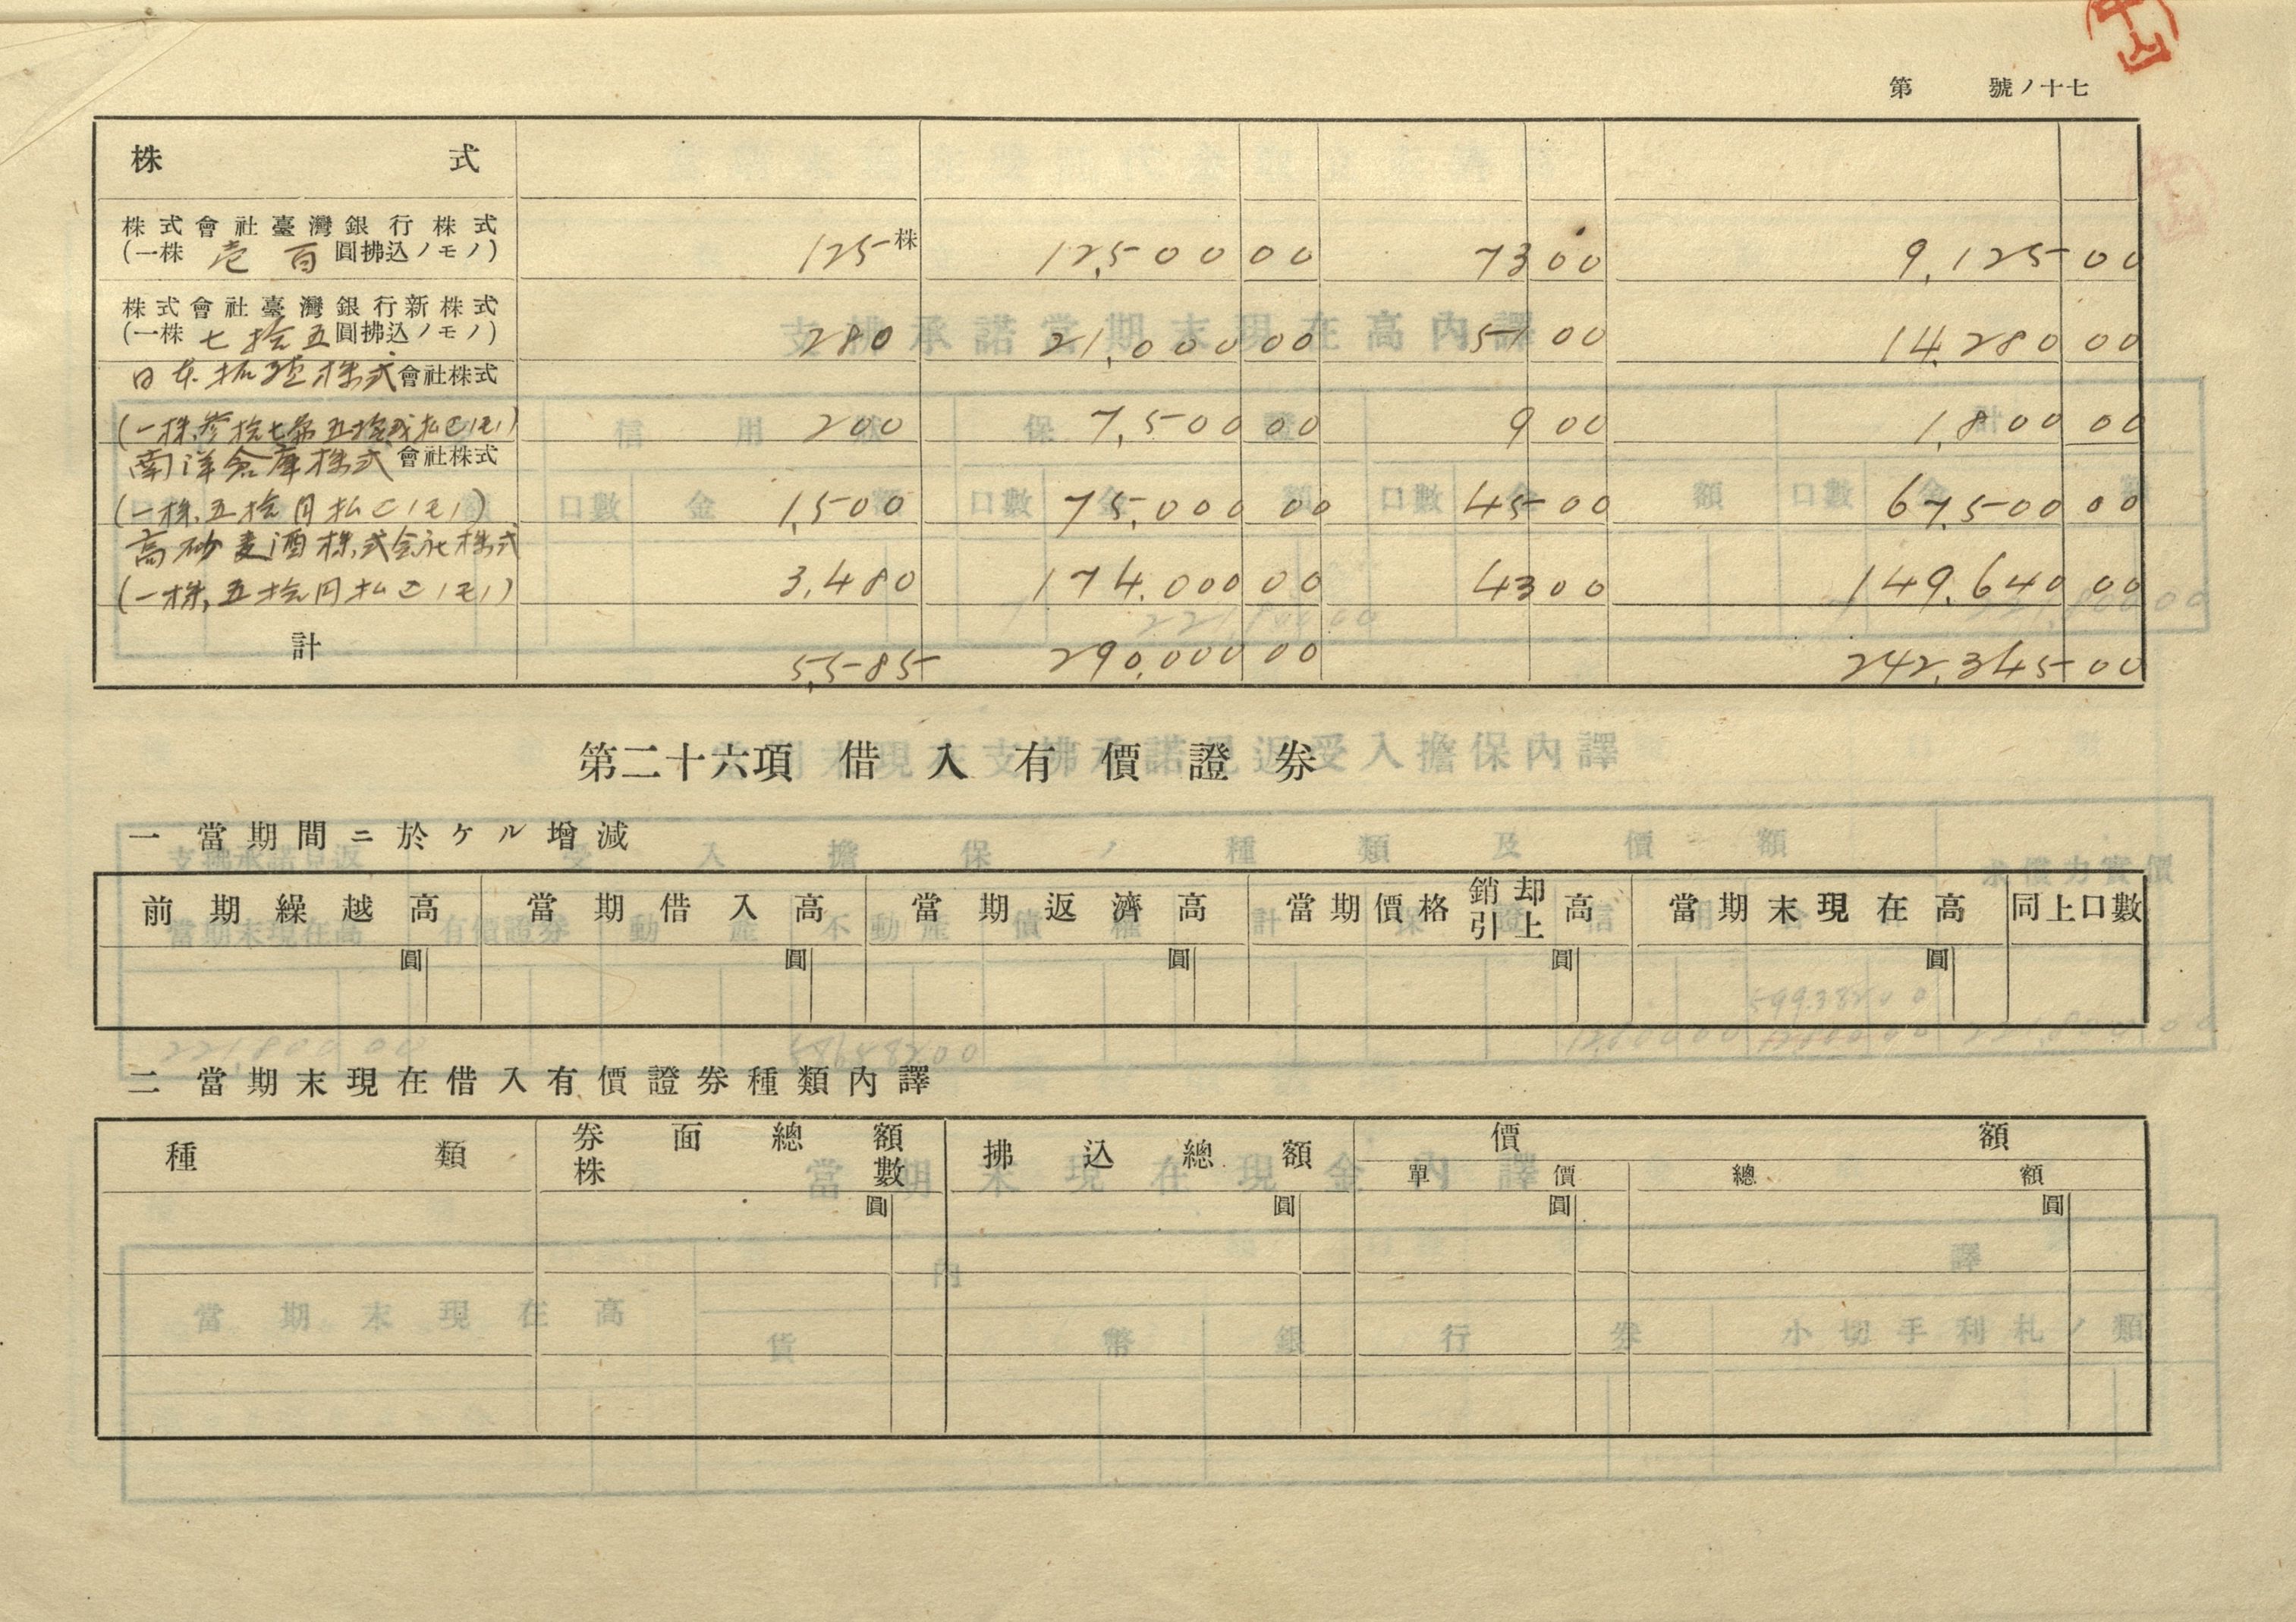 中山
第 號ノ十七
株式
株式會社臺灣銀行株式
(一株壱百圓拂込ノモノ) 125株 12,500 00 73 00 9,125 00
株式會社臺灣銀行新株式
(一株七拾五圓拂込ノモノ) 280 21,000 00 51 00 14,280 00
日本拓殖株式會社株式
(一株参拾七円五拾銭払込ノモノ) 200 7,500 00 9 00 1,800 00
南洋倉庫株式會社株式
(一株五拾円払込ノモノ) 1,500 75,000 00 45 00 67,500 00
高砂麦酒株式会社株式
(一株五拾円払込ノモノ) 3,480 174,000 00 43 00 149,640 00
計 5,585 290,000 00 242,345 00
第二十六項 借入有價證券
一 當期間ニ於ケル增減
前期繰越高 當期借入高 當期返濟高 當期價格銷却引上高 當期末現在高 同上口數
圓 圓 圓 圓 圓
二 當期末現在借入有價證券種類內譯
種類 券面總額 株數 拂込總額 價額
單價 總額
圓 圓 圓 圓